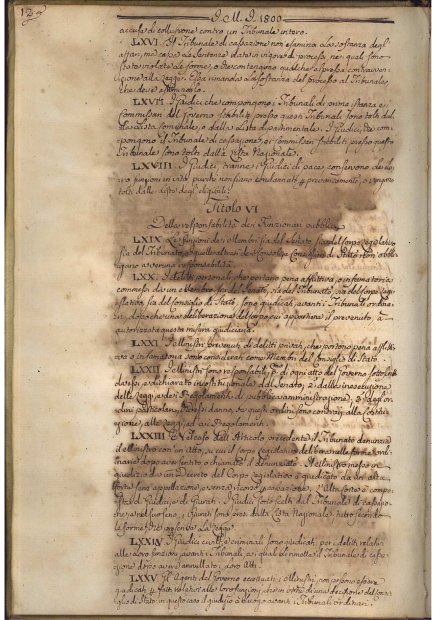 12
I. M. I. 1800
accusa di collusione contro un Tribunale intero.
LXVI. Il Tribunale di cassazione non esamina la sostanza degl'
affari, ma cassa le sentenze date in vigore di processi nei quali sono
state violate le forme, o che contengono qualche espressa contrav-
venzione alla Legge: Essa rimanda la sostanza del processo al Tribunale,
che deve esaminarlo.
LXVII. I Giudici, che compongono i Tribunali di prima istanza e
Commissari del Governo stabiliti presso questi Tribunali sono tolti dal-
la lista comunale, o dalla Lista dipartimentale. I Giudici, che com-
pongono il Tribunale di cassazione, e i commissari stabiliti presso questo
Tribunale sono tolti dalla Lista Nazionale.
LXVIII. I Giudici, tranne i Giudici di pace, conservono le lo-
ro funzioni in vita, purché non siano condannati p prevaricamento, o non
tolti dalle liste degl'eligibili.
Titolo VI
Della responsabilità dei Funzionari pubblici
LXIX. Le funzioni dei Membri sia del Senato, sia del Corpo Legislativo
sia del Tribunato, e quelle dei Consoli, e Consiglieri di Stato non obbli-
gono a veruna responsabilità.
LXX. I delitti personali, che portano pena afflittiva, o infamatoria
commessi da un Membro sia del Senato, sia del Tribunato, sia del Corpo Le-
gislativo, sia del Consiglio di Stato, sono giudicati avanti i Tribunali ordina-
ri, dopo che una deliberazione del corpo, cui appartiene il prevenuto, à
autorizzata questa misura giudiciaria.
LXXI. I Ministri prevenuti di delitti privati, che portono pena afflitti-
va, o infamatoria sono considerati come Membri del Consiglio di Stato.
LXXII. I Ministri sono responsabili 1° di ogni atto del Governo sottoscritto
da essi, e dichiarato incostituzionale dal Senato; 2° dalla inesecuzione
delle Leggi, e dei Regolamenti di pubblica amministrazione, 3° degli or-
dini particolari, che essi danno, se questi ordini sono contrari alla Costitu-
zione, alle Leggi, ed ai Regolamenti.
LXXIII. Nel caso dell'Articolo precedente il Tribunato denunzia
il Ministro con un Atto, su cui il corpo Legislativo delibera nelle forme ordi-
narie dopo aver sentito, o chiamato il denunziato. Il Ministro messo in
giudizio da un Decreto del Corpo Legislativo è giudicato da un'alta
Corte senza appellazione, e senza ricorso in cassazione. L'Alta Corte è compo-
sta di Giudici, e di Giurati. I Giudici sono scelti dal Tribunale di cassazio-
ne, e nel suo seno, i Giurati sono presi dalla Lista Nazionale, tutto secondo
le forme, che prescrive la Legge.
LXXIV. I Giudici civili, e criminali sono giudicati per i delitti relativi
alle loro funzioni avanti i Tribunali, ai quali li rimette il Tribunale di cassa-
zione dopo aver annullato i loro Atti.
LXXV. Gl'Agenti del Governo eccettuati i Ministri, non possono essere
giudicati p fatti relativi alle loro funzioni, che in virtù di una decisione del Consi-
glio di Stato: in questo caso il giudizio à luogo avanti i Tribunali ordinari.